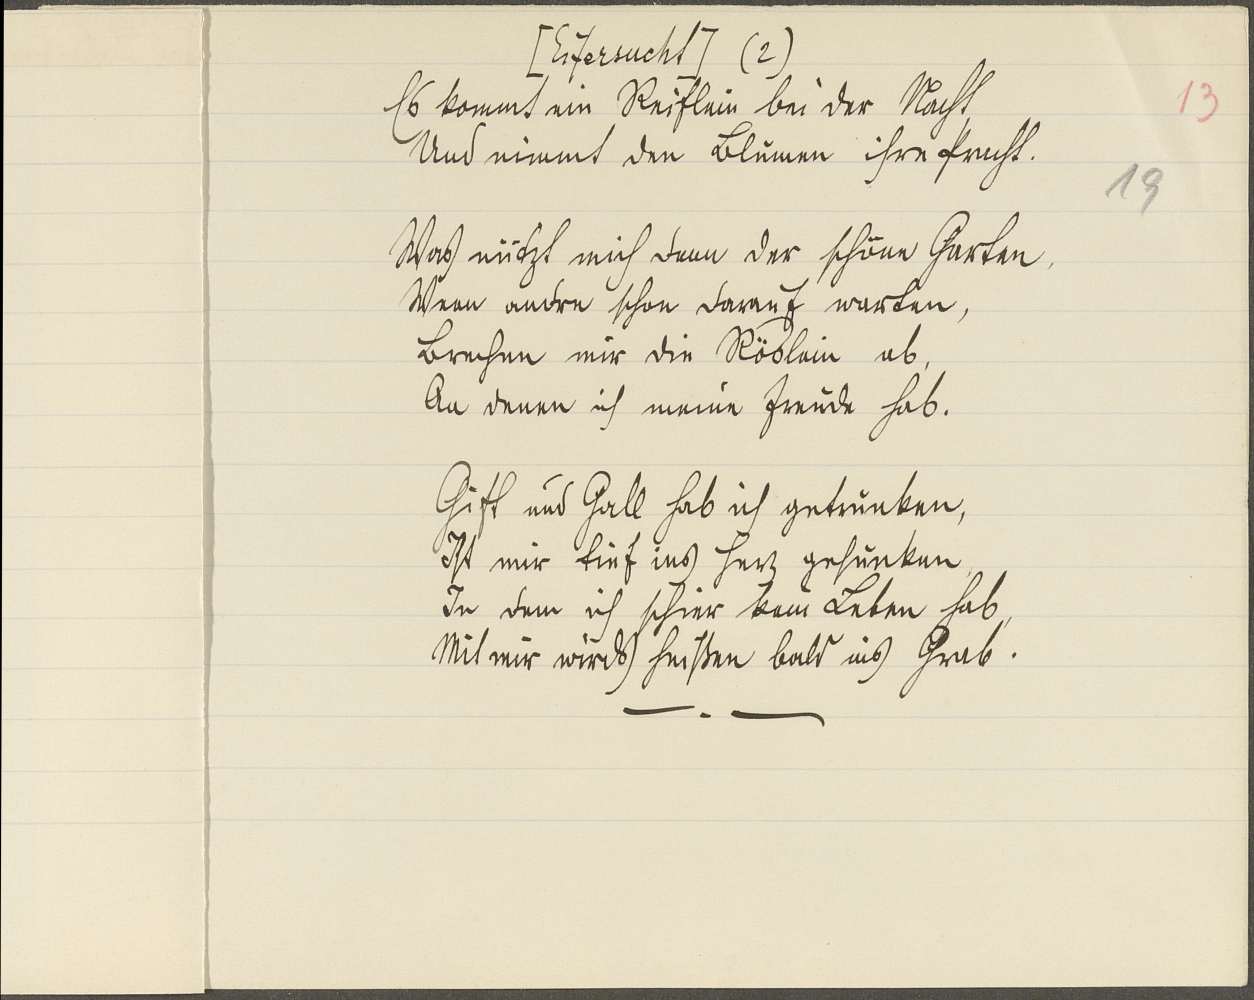 [Eifersucht] (2)
Es kommt ein Reiflein bei der Nacht,
13
Und nimmt den Blumen ihre Pracht.
19
Was nützt mich denn der schöne Garten,
Wenn andre schon darauf warten,
Brechen mir die Röslein ab,
An denen ich meine Freude hab.
Gift und Gall hab ich getrunken,
Ist mir tief ins Herz gesunken,
In dem ich schier kein Leben hab,
Mit mir wirds heißen bald ins Grab.